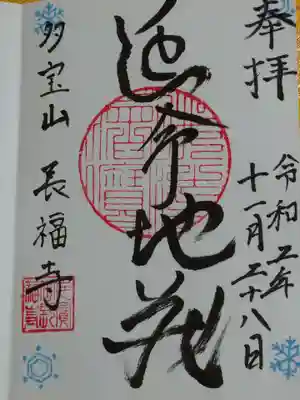 奉拝
令和二年
十一月二十八日
延命地蔵
多宝山 長福寺